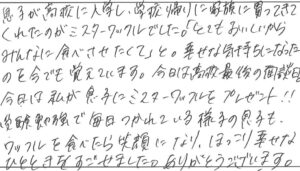 息子が高校に入学し、学校帰りに家族に買ってきて
くれたのがミスターワッフルでした。「とてもおいしいから
みんなに食べさせたくて」と。幸せな気持ちになった
のを今でも覚えています。今日は高校最後の面談日
今日は私が息子にミスターワッフルをプレゼント!!
受験勉強で毎日つかれている様子の息子も
ワッフルを食べたら笑顔になり、ほっこり幸せな
ひとときをすごせました。ありがとうございます。